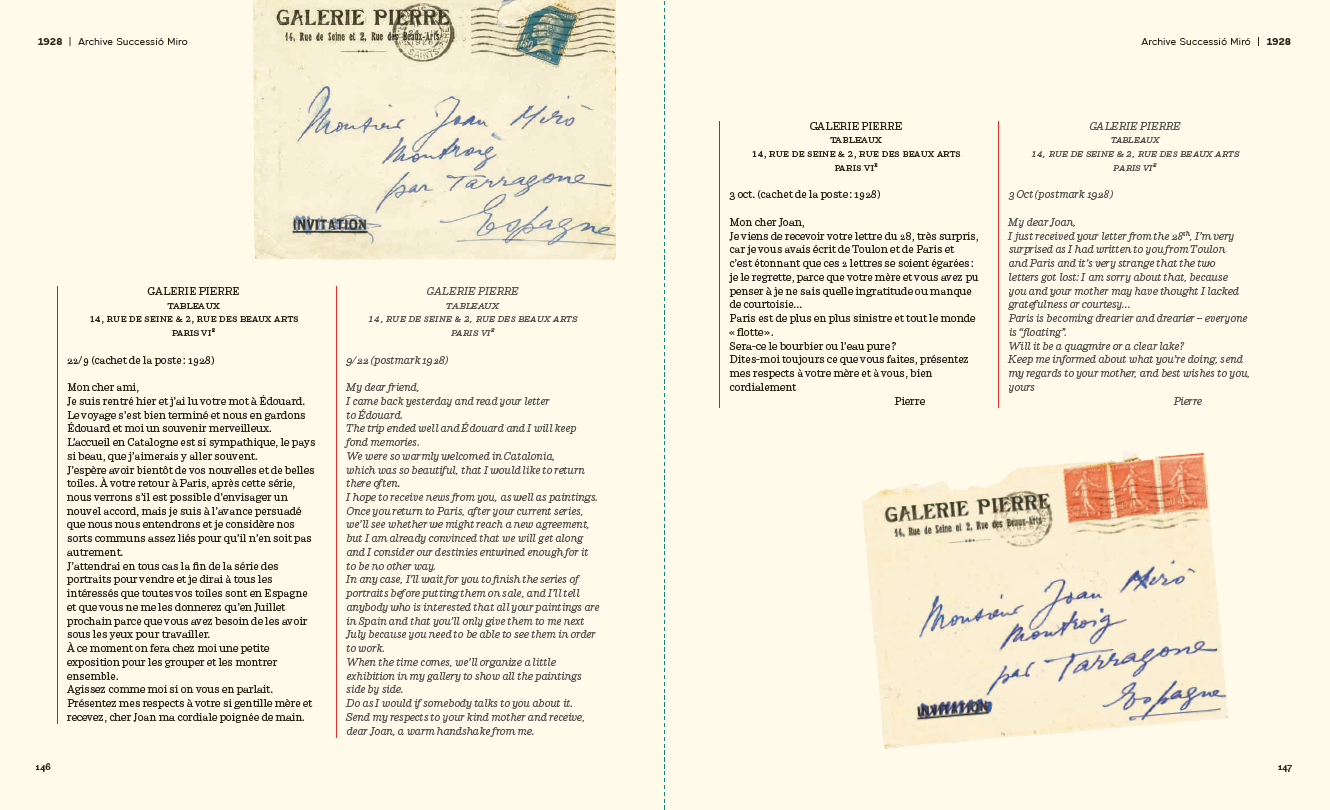 1928 | Archive Successió Miro
GALERIE PIERRE
14, Rue de Seine et 2, Rue des Beaux-Arts
Monsieur Joan Miró
Montroig
par Tarragone
Espagne
INVITATION
GALERIE PIERRE
TABLEAUX
14, RUE DE SEINE & 2, RUE DES BEAUX ARTS
PARIS VIE
22/9 (cachet de la poste : 1928)
Mon cher ami,
Je suis rentré hier et j'ai lu votre mot à Édouard.
Le voyage s'est bien terminé et nous en gardons
Édouard et moi un souvenir merveilleux.
L'accueil en Catalogne est si sympathique, le pays
si beau, que j'aimerais y aller souvent.
J'espère avoir bientôt de vos nouvelles et de belles
toiles. À votre retour à Paris, après cette série,
nous verrons s'il est possible d'envisager un
nouvel accord, mais je suis à l'avance persuadé
que nous nous entendrons et je considère nos
sorts communs assez liés pour qu'il n'en soit pas
autrement.
J'attendrai en tous cas la fin de la série des
portraits pour vendre et je dirai à tous les
intéressés que toutes vos toiles sont en Espagne
et que vous ne me les donnerez qu'en Juillet
prochain parce que vous avez besoin de les avoir
sous les yeux pour travailler.
À ce moment on fera chez moi une petite
exposition pour les grouper et les montrer
ensemble.
Agissez comme moi si on vous en parlait.
Présentez mes respects à votre si gentille mère et
recevez, cher Joan ma cordiale poignée de main.
GALERIE PIERRE
TABLEAUX
14, RUE DE SEINE & 2, RUE DES BEAUX ARTS
PARIS VIE
9/22 (postmark 1928)
My dear friend,
I came back yesterday and read your letter
to Édouard.
The trip ended well and Édouard and I will keep
fond memories.
We were so warmly welcomed in Catalonia,
which was so beautiful, that I would like to return
there often.
I hope to receive news from you, as well as paintings.
Once you return to Paris, after your current series,
we'll see whether we might reach a new agreement,
but I am already convinced that we will get along
and I consider our destinies entwined enough for it
to be no other way.
In any case, I'll wait for you to finish the series of
portraits before putting them on sale, and I'll tell
anybody who is interested that all your paintings are
in Spain and that you'll only give them to me next
July because you need to be able to see them in order
to work.
When the time comes, we'll organize a little
exhibition in my gallery to show all the paintings
side by side.
Do as I would if somebody talks to you about it.
Send my respects to your kind mother and receive,
dear Joan, a warm handshake from me.
146
Archive Successió Miró | 1928
GALERIE PIERRE
TABLEAUX
14, RUE DE SEINE & 2, RUE DES BEAUX ARTS
PARIS VIE
3 oct. (cachet de la poste : 1928)
Mon cher Joan,
Je viens de recevoir votre lettre du 28, très surpris,
car je vous avais écrit de Toulon et de Paris et
c'est étonnant que ces 2 lettres se soient égarées :
je le regrette, parce que votre mère et vous avez pu
penser à je ne sais quelle ingratitude ou manque
de courtoisie…
Paris est de plus en plus sinistre et tout le monde
« flotte ».
Sera-ce le bourbier ou l'eau pure ?
Dites-moi toujours ce que vous faites, présentez
mes respects à votre mère et à vous, bien
cordialement
Pierre
GALERIE PIERRE
TABLEAUX
14, RUE DE SEINE & 2, RUE DES BEAUX ARTS
PARIS VIE
3 Oct (postmark 1928)
My dear Joan,
I just received your letter from the 28th, I'm very
surprised as I had written to you from Toulon
and Paris and it's very strange that the two
letters got lost: I am sorry about that, because
you and your mother may have thought I lacked
gratefulness or courtesy…
Paris is becoming drearier and drearier – everyone
is "floating".
Will it be a quagmire or a clear lake?
Keep me informed about what you're doing, send
my regards to your mother, and best wishes to you,
yours
Pierre
GALERIE PIERRE
14, Rue de Seine et 2, Rue des Beaux-Arts
Monsieur Joan Miró
Montroig
par Tarragone
Espagne
INVITATION
147